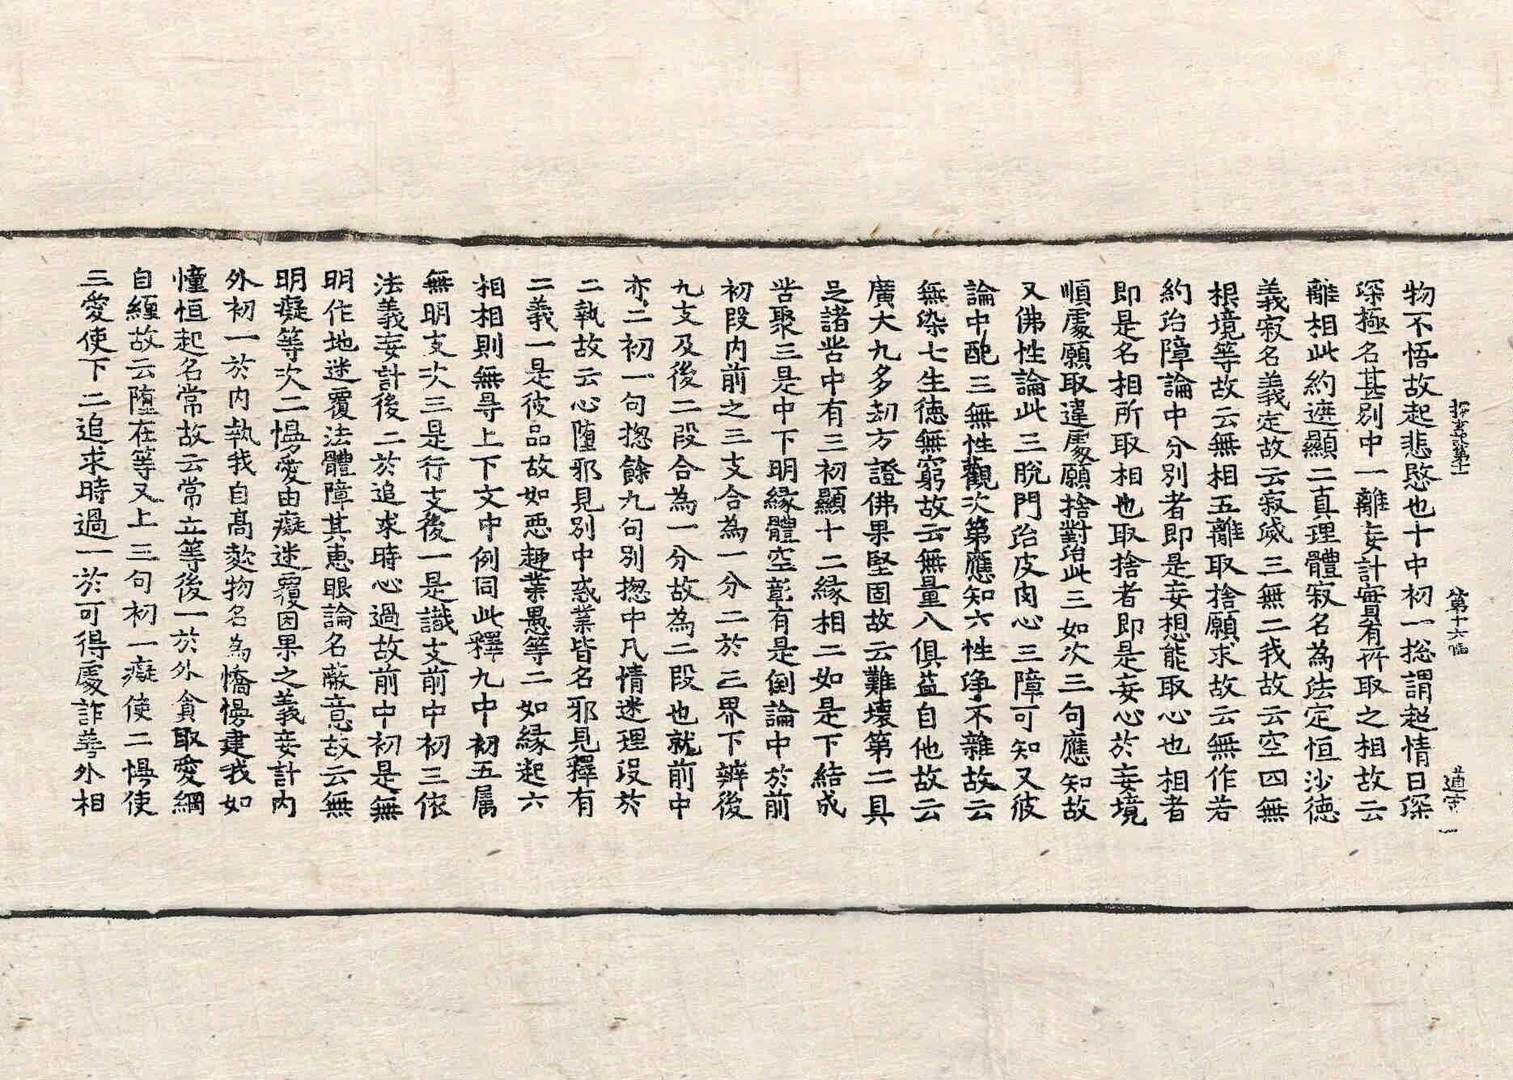 探玄記第十一 第十六幅 道宗
物不悟故起悲愍也十中初一捴謂超情曰深
深極名甚別中一離妄計實有所取之相故云
離相此約遮顯二真理體寂名為法定恒沙德
義寂名義定故云寂滅三無二我故云空四無
根境等故云無相五離取捨願求故云無作若
約治障論中分別者即是妄想能取心也相者
即是名相所取相也取捨者即是妄心於妄境
順處願取違處願捨對治此三如次三句應知故
又佛性論此三脫門治皮肉心三障可知又彼
論中配三無性觀次第應知六性淨不雜故云
無染七生德無窮故云無量八俱益自他故云
廣大九多劫方證佛果堅固故云難壞第二具
足諸苦中有三初顯十二緣相二如是下結成
苦聚三是中下明緣體空彰有是倒論中於前
初段內前之三支合為一分二於三界下辨後
九支及後二段合為一分故為二段也就前中
亦二初一句捴餘九句別捴中凡情迷理沒於
二執故云心墮邪見別中惑業皆名邪見釋有
二義一是彼品故如惡趣業愚等二如緣起六
相相則無㝵上下文中例同此釋九中初五屬
無明支次三是行支後一是識支前中初三依
法義妄計後二於追求時心過故前中初是無
明作地迷覆法體障其惠眼論名蔽意故云無
明癡等次二慢愛由癡迷覆因果之義妄計內
外初一於內執我自高欺物名為憍慢建我如
幢恒起名常故云常立等後一於外貪取愛網
自纏故云墮在等又上三句初一癡使二慢使
三愛使下二追求時過一於可得處詐善外相